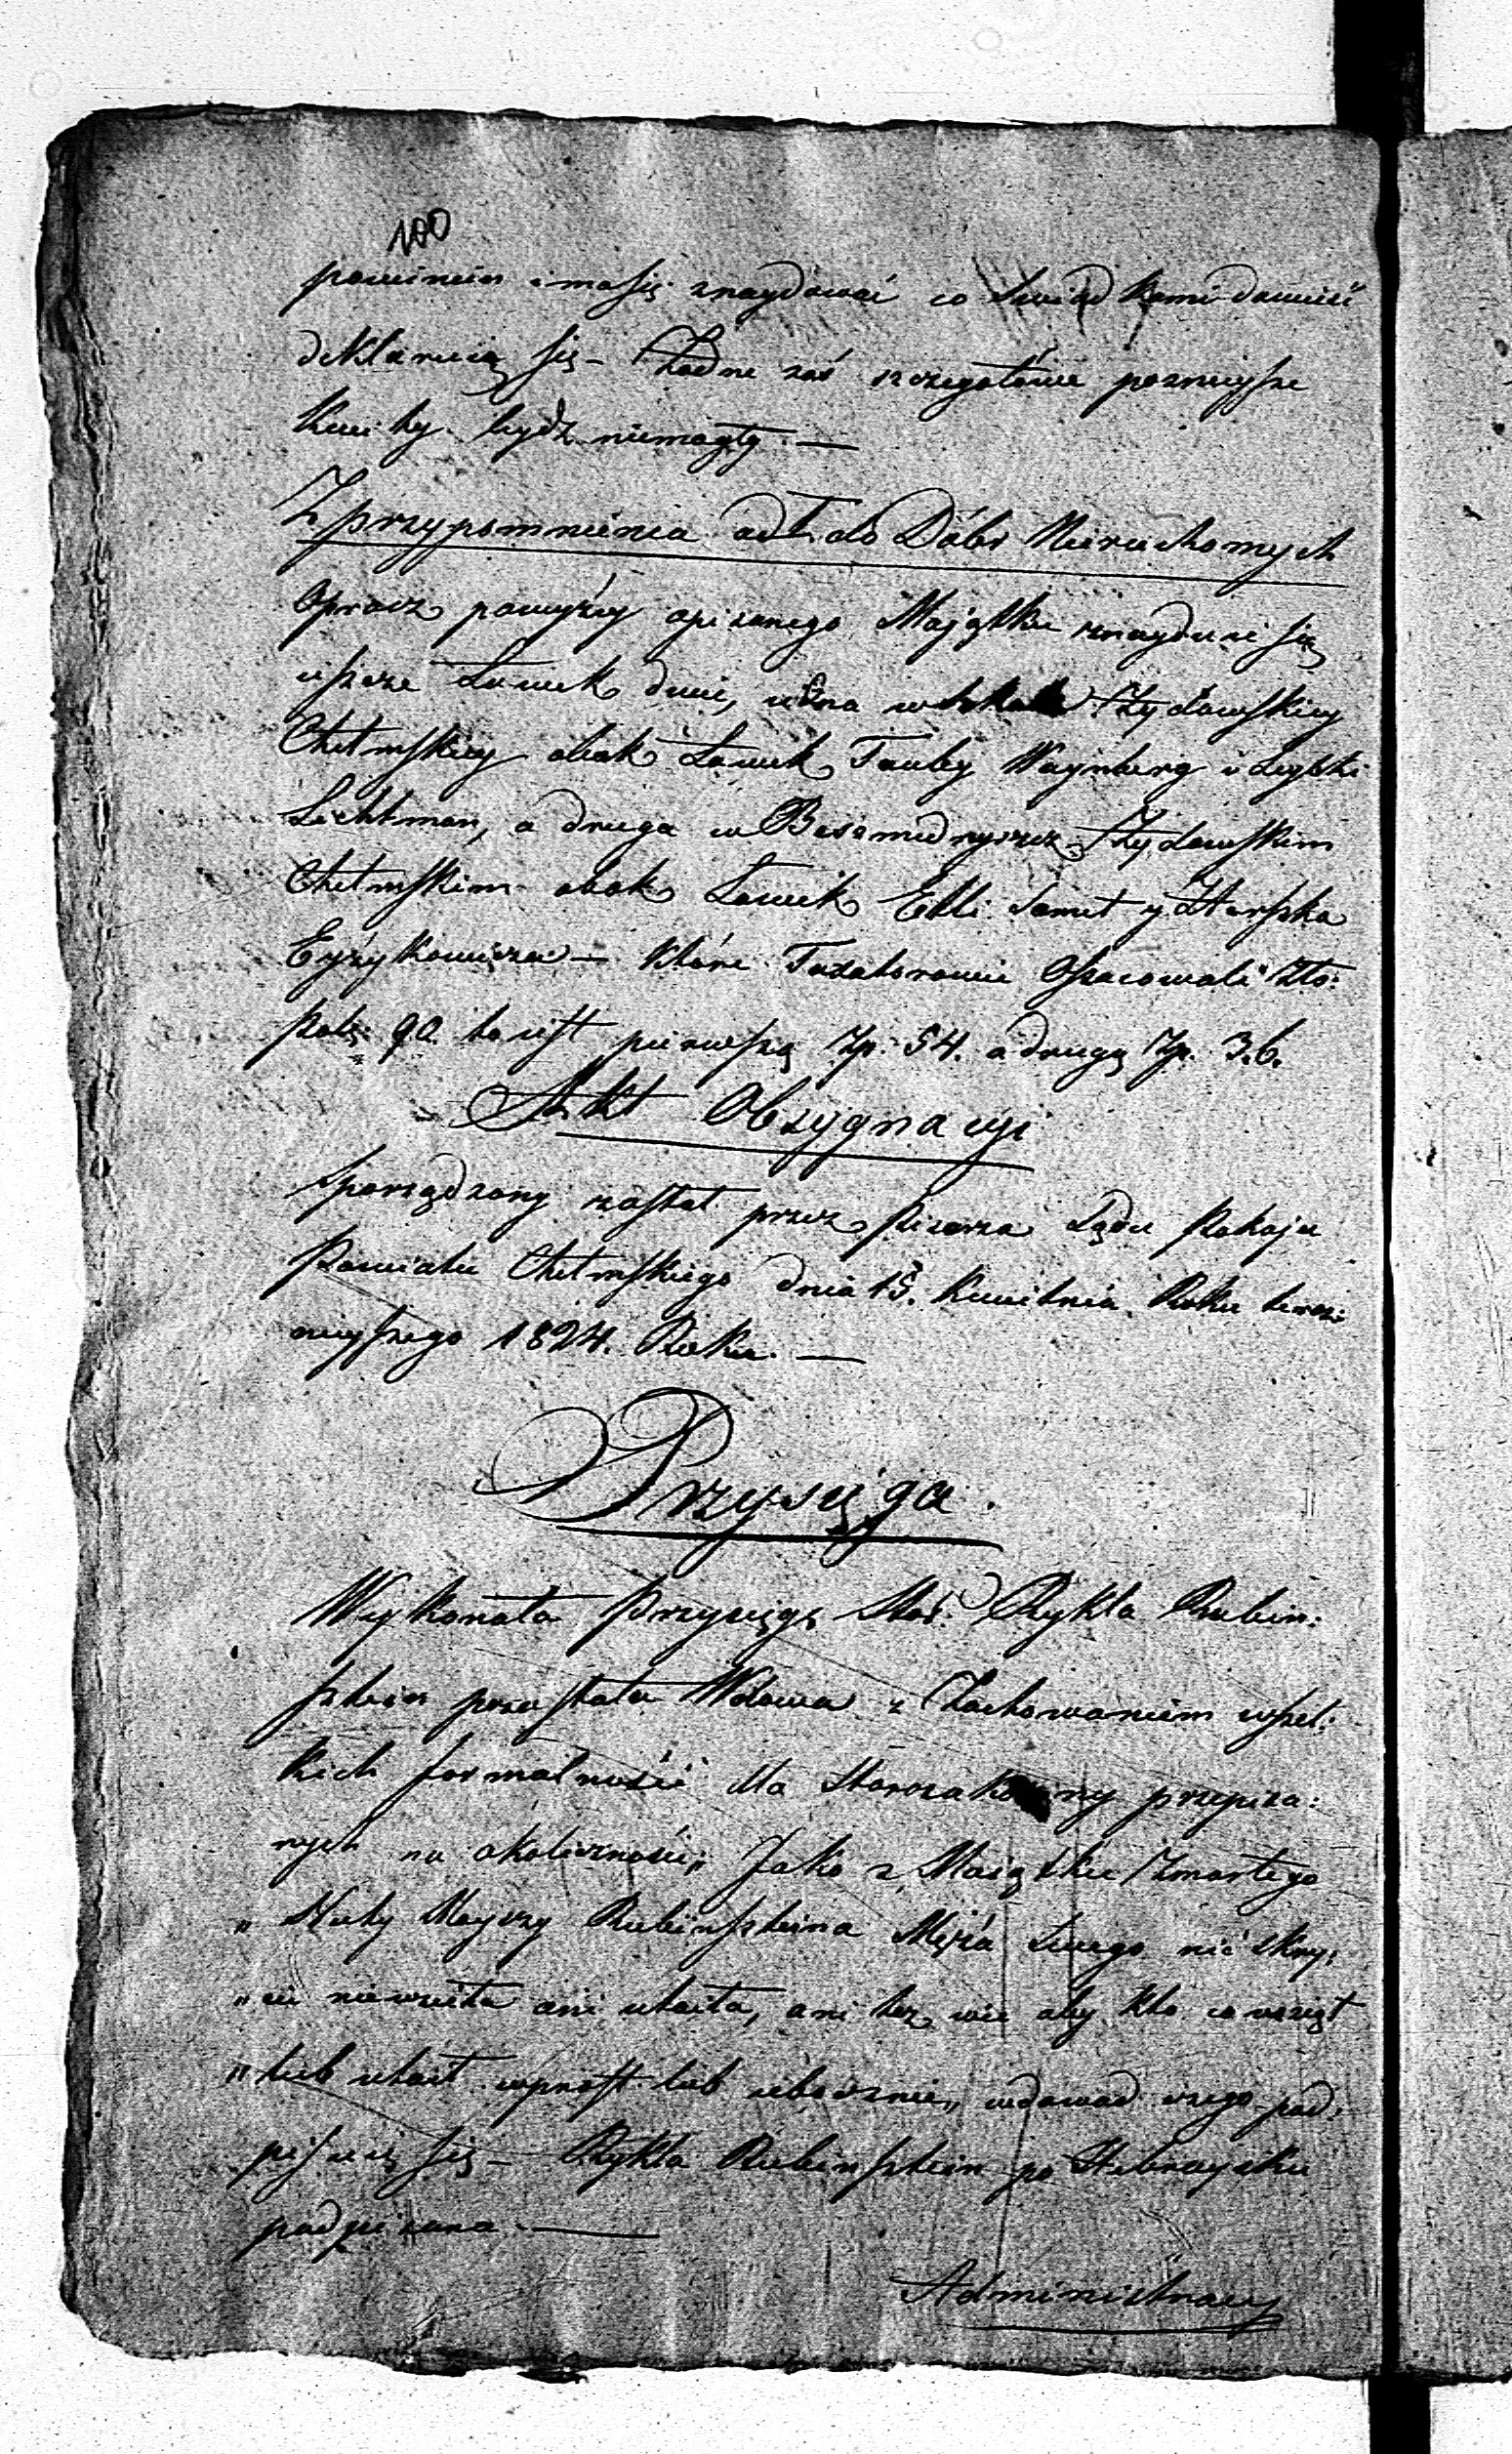 100
powinien i ma się znaydować co Swiadkami dowieść
deklaruią się – Żadne zaś szczegółowe poznieysze
kwity bydz niemogły. —
Z przypomnienia ad do Dóbr Nieruchomych
Oprócz powyżey opisanego Majątku znayduie się
ieszcze Ławek dwie, iedna w Żydowskiey
Chełmskiey obok Ławek Tauby Waynberg i Leybki
Lichtman, a druga w Bosmedryszcz Żydowskim
Chełmskim obok Ławek Elli Samet y Herszka
Eyzykowicza – które Taxatorowie Oszacowali Zło:
Pols: 90. to iest pierwszą Zp. 54. a drugą Zp. 36.
Akt Obsygnacyi
Sporządzony został przez Pisarza Sądu Pokoju
Powiatu Chełmskiego dnia 15. Kwietnia Roku teraz:
nieyszego 1824. Roku. —
Przysięga.
Wykonała Przysięgę Star. Rykla Rubin:
sztein pozostała Wdowa z Zachowaniem wszel:
kich formalności dla Starozakonny przepisa:
nych na okoliczność „ Jako z Maiątku Zmarłego
„ Nuty Meyszy Rubinszteina Męża Swego nic skry:
„ cie niewzieła ani utaiła, ani też wie aby kto co wziął
„ lub utaił wprost lub ubocznie „ wdowod czego pod:
pisuię się – Rykla Rubinsztein po Hebraysku
podpisana. —
Administracy